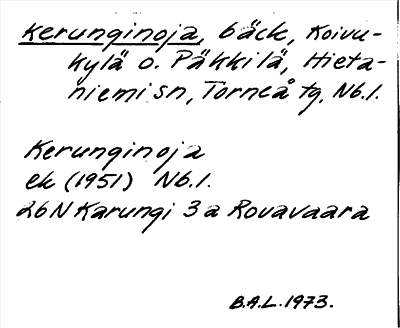 Kerunginoja, bäck, Koivu-
kylä o. Päkkilä, Hieta-
niemi sn, Torneå tg, Nb.l.
Kerunginoja
ek (1951) Nb.l.
26N Karungi 3a Rovavaara
B.A.L. 1973.